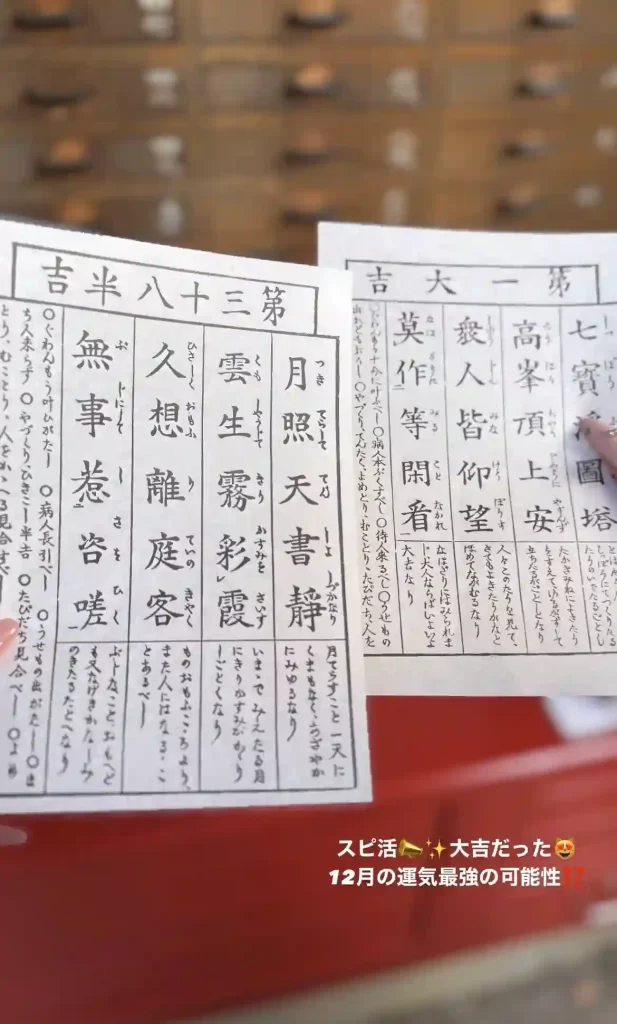 第一大吉
七寶浮圖塔
高峯頂上安
たかきみねによきたう
衆人皆仰望
人々このたうを見て、
ほめてながむるなり
莫作等閑看
なほざりにはみられま
じ大人ならばいよいよ
大吉なり
○病人本ぶくすべし ○待人来るべし ○うせもの
○やづくり、てんたく、よめとり、むことり、たびだち、人を
第三十八半吉
月照天書靜
つき てらして てん しよ しづかなり
月てらすこと一天に
くまもなく、あざやか
にみゆるなり
雲生霧彩霞
くも しやうじて きり かすみを さいす
いまゝでみえたる月
にきりかすみがかゝり
しごとくなり
久想離庭客
ひさしく おもふ り ていの きやく
ものおもふこゝろより、
また人にはなるゝこ
とあるべし
無事惹咨嗟
ぶ じにして し さを ひく
も又なげきかなしみ
のきたるたとへなり
○ぐわんもう叶ひがたし ○病人長引べし ○うせもの出がたし ○ま
ち人来らず ○やづくり、ひきこし半吉 ○たびだち見合べし ○よめ
とり、むことり、人をかゝへる見合すべし
スピ活📣✨大吉だった😻
12月の運気最強の可能性⁉️